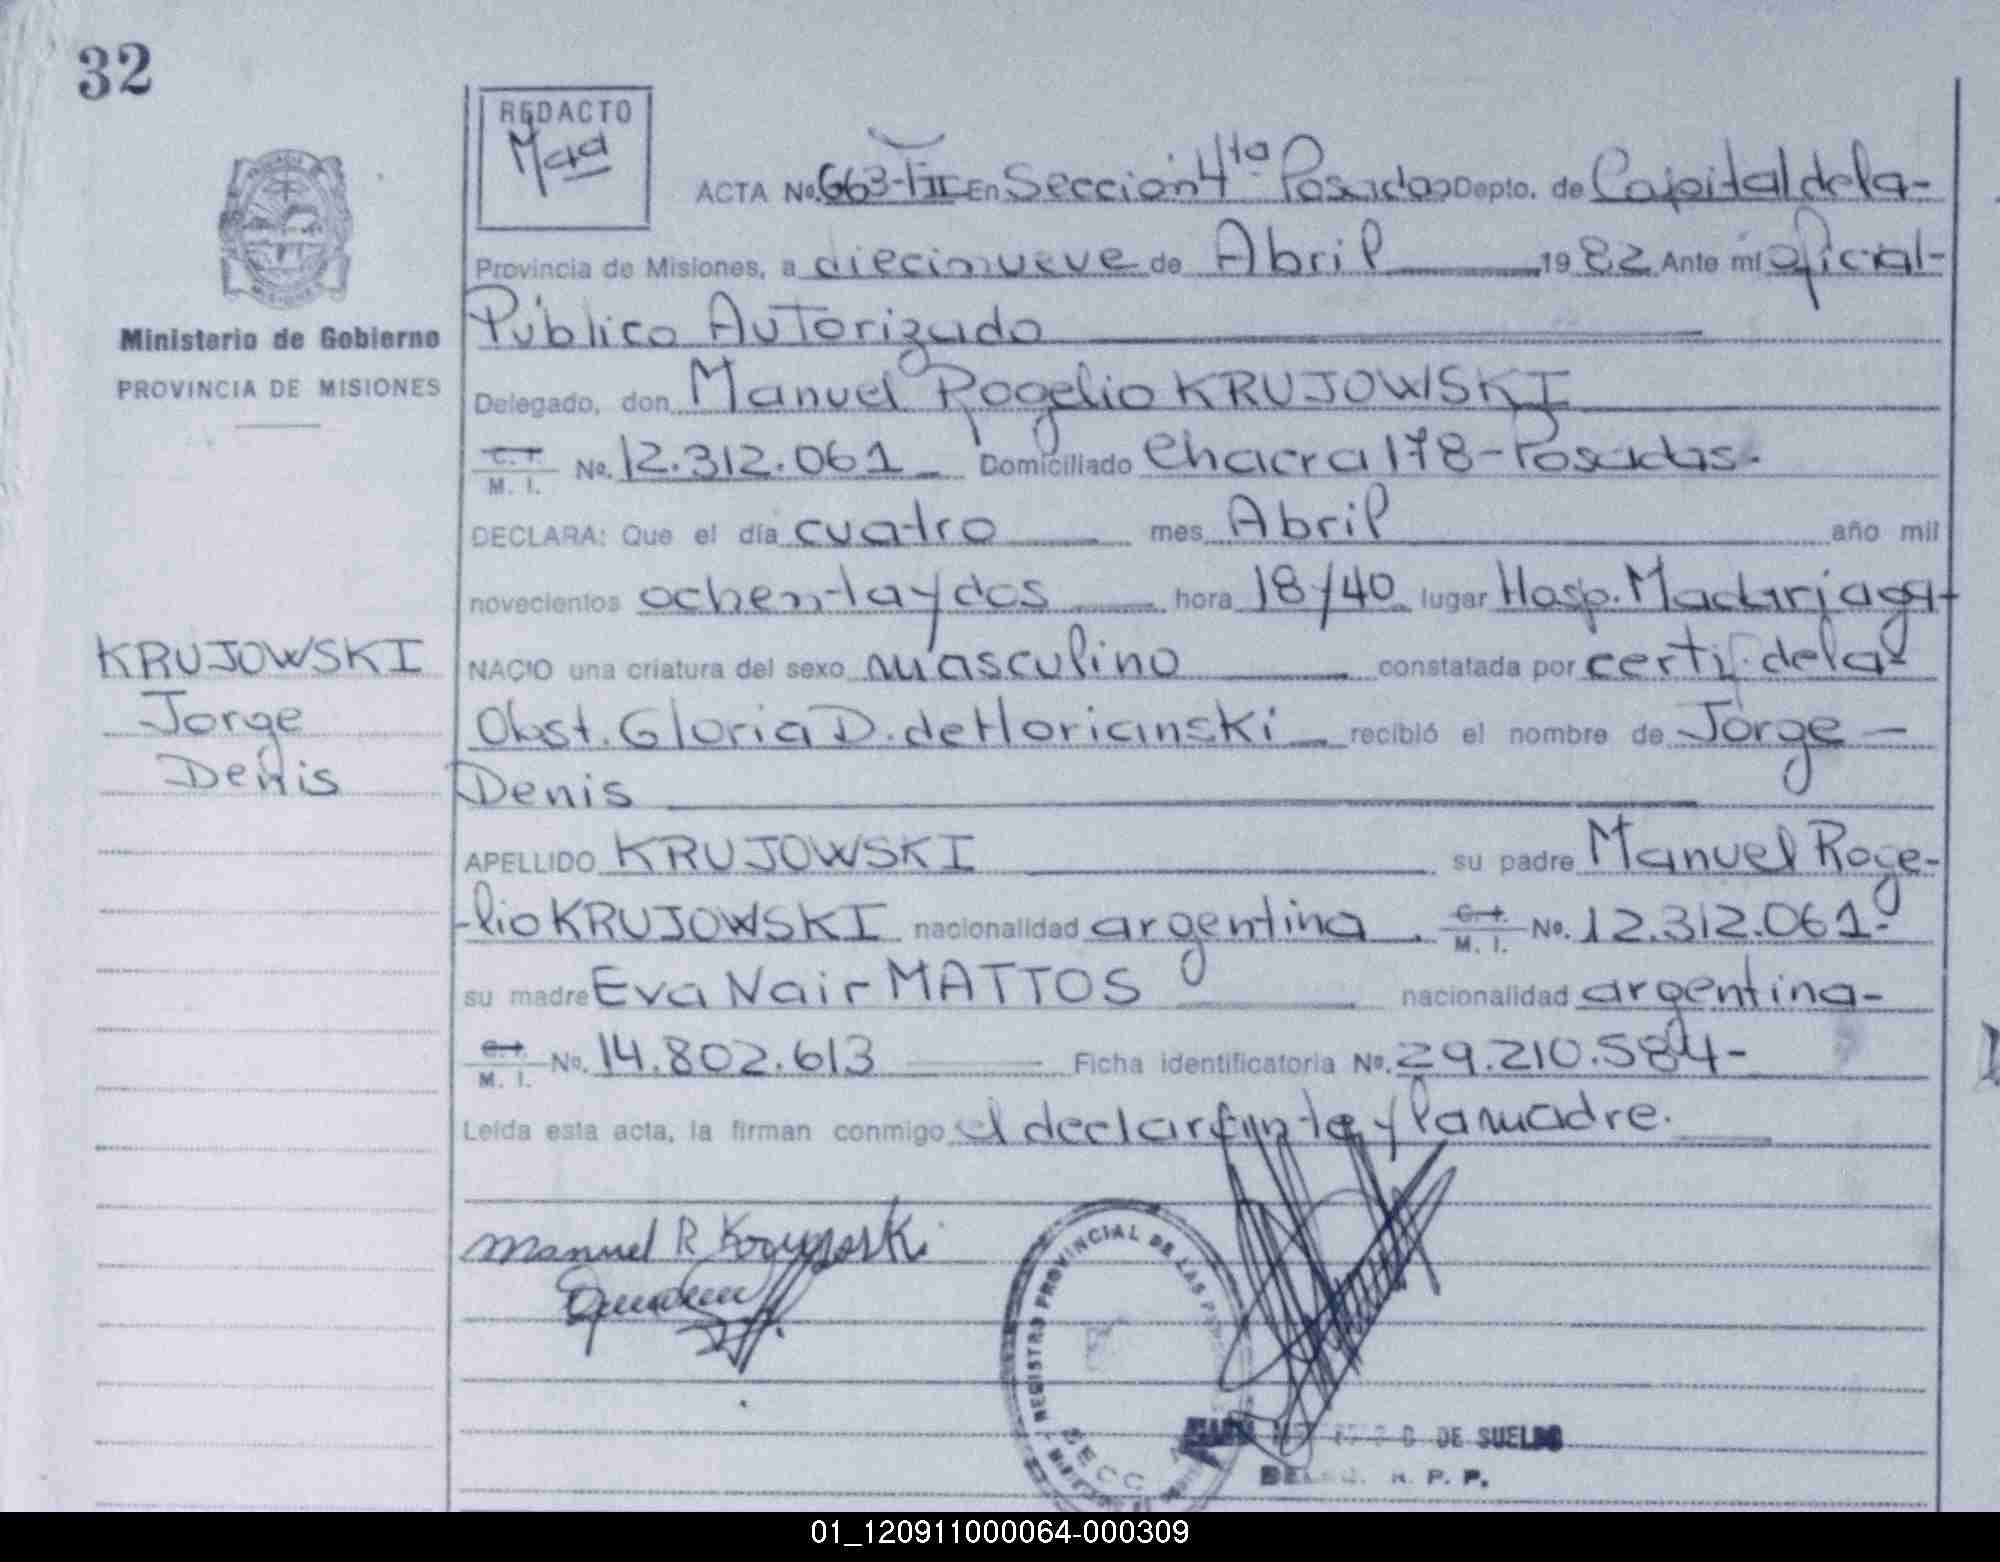 32
REDACTO
Maa
ACTA No. 663-TII En Sección 4ta Posadas Depto. de Capital de la-
Provincia de Misiones, a diecinueve de Abril 1982 Ante mí Oficial-
Público Autorizado
Ministerio de Gobierno
PROVINCIA DE MISIONES
Delegado, don Manuel Rogelio KRUJOWSKI
C. I. / M. I. No. 12.312.061 Domiciliado Chacra 178-Posadas-
DECLARA: Que el día cuatro mes Abril año mil
novecientos ochenta y dos hora 18/40 lugar Hosp. Madariaga-
KRUJOWSKI
Jorge
Denis
NACIO una criatura del sexo masculino constatada por certif. de la
Obst. Gloria D. de Horianski recibió el nombre de Jorge-
Denis
APELLIDO KRUJOWSKI su padre Manuel Roge-
-lio KRUJOWSKI nacionalidad argentina. C. I. / M. I. No. 12.312.061-
su madre Eva Nair MATTOS nacionalidad argentina-
C. I. / M. I. No. 14.802.613 Ficha identificatoria No. 29.210.584-
Leída esta acta, la firman conmigo el declarante y la madre.
Manuel R
REGISTRO PROVINCIAL DE LAS
SECC
DE SUELDO
R. P. P.
01_120911000064-000309